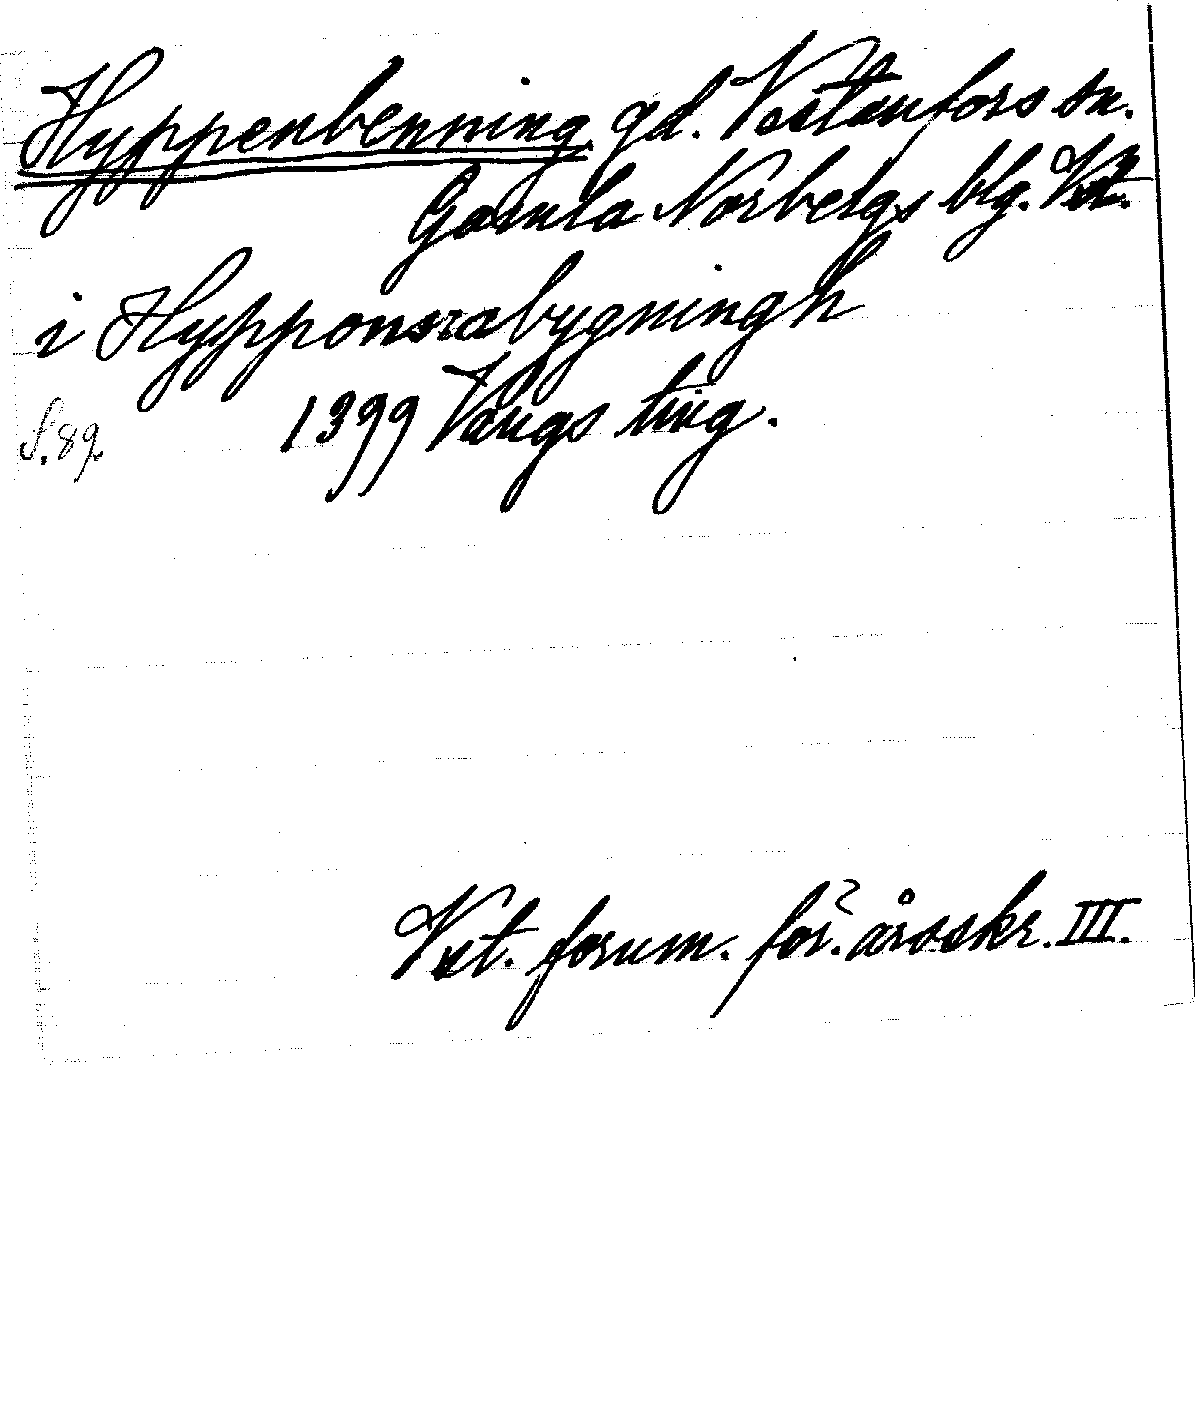 Hyppenbenning gd. Västanfors sn.
Gamla Norbergs blg. Vstm.
i Hypponsrabygningh
S. 89. 1399 Vangs ting.
Vst. fornm. för. årsskr. III.